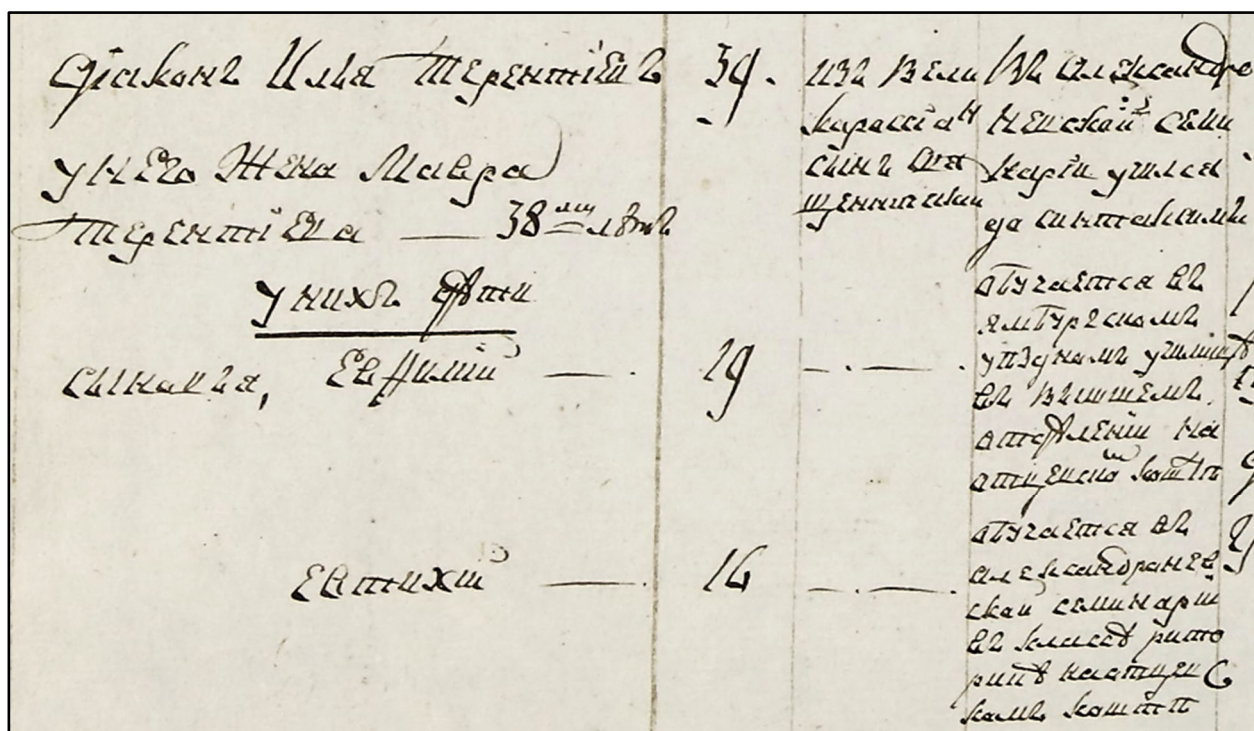 Діаконъ Илья Терентіевъ 39.
у него Жена Мавра
Терентіева — 38 ми лѣтъ
у нихъ дѣти
сыновья, Евфимій — . 19 — . — .
Евтихій — . 16 — . — .
изъ Вели
сынъ свя
щенническій
Въ Александро
невской семи
наріи учился
до синтаксимы
обучается въ
Ямбургскомъ
уѣздномъ училищѣ
въ Вышшемъ
отдѣленіи на
отцевско коштѣ
обучается въ
александроневъ
ской семинаріи
въ классѣ рито
рикѣ на отцев
комъ коштѣ